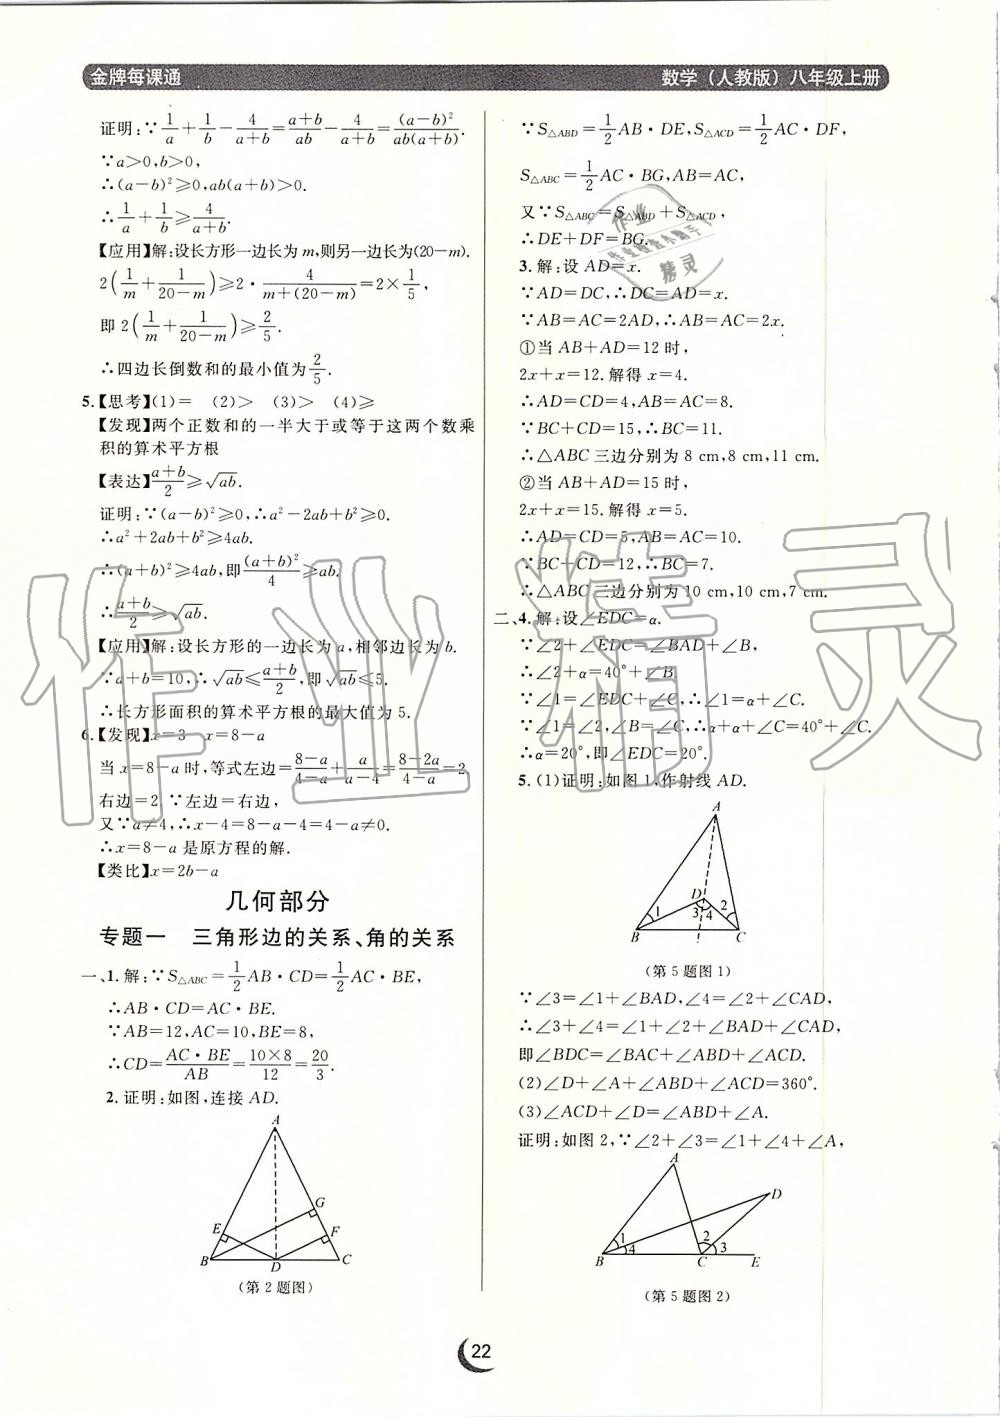 金牌每课通
数学（人教版）八年级上册
证明：∵1/a＋1/b－4/(a＋b)＝(a＋b)/ab－4/(a＋b)＝(a－b)²/ab(a＋b).
∵a＞0，b＞0，
∴(a－b)²≥0，ab(a＋b)＞0.
∴1/a＋1/b≥4/(a＋b).
【应用】解：设长方形一边长为 m，则另一边长为(20－m).
2(1/m＋1/(20－m))≥2·4/(m＋(20－m))＝2×1/5，
即 2(1/m＋1/(20－m))≥2/5.
∴四边长倒数和的最小值为2/5.
5.【思考】(1)＝ (2)＞ (3)＞ (4)≥
【发现】两个正数和的一半大于或等于这两个数乘
积的算术平方根
【表达】(a＋b)/2≥√ab.
证明：∵(a－b)²≥0，∴a²－2ab＋b²≥0.
∴a²＋2ab＋b²≥4ab.
∴(a＋b)²≥4ab，即(a＋b)²/4≥ab.
∴(a＋b)/2≥√ab.
【应用】解：设长方形的一边长为 a，相邻边长为 b.
∵a＋b＝10，∴√ab≤(a＋b)/2，即√ab≤5.
∴长方形面积的算术平方根的最大值为 5.
6.【发现】x＝3 x＝8－a
当 x＝8－a 时，等式左边＝(8－a)/(4－a)＋a/(a－4)＝(8－2a)/(4－a)＝2，
右边＝2. ∵左边＝右边，
又∵a≠4，∴x－4＝8－a－4＝4－a≠0.
∴x＝8－a 是原方程的解.
【类比】x＝2b－a
几何部分
专题一 三角形边的关系、角的关系
一、1. 解：∵S△ABC＝1/2AB·CD＝1/2AC·BE，
∴AB·CD＝AC·BE.
∵AB＝12，AC＝10，BE＝8，
∴CD＝AC·BE/AB＝10×8/12＝20/3.
2. 证明：如图，连接 AD.
A
G
E
F
B
D
C
（第 2 题图）
∵S△ABD＝1/2AB·DE，S△ACD＝1/2AC·DF，
S△ABC＝1/2AC·BG，AB＝AC，
又∵S△ABC＝S△ABD＋S△ACD，
∴DE＋DF＝BG.
3. 解：设 AD＝x.
∵AD＝DC，∴DC＝AD＝x.
∵AB＝AC＝2AD，∴AB＝AC＝2x.
①当 AB＋AD＝12 时，
2x＋x＝12. 解得 x＝4.
∴AD＝CD＝4，AB＝AC＝8.
∵BC＋CD＝15，∴BC＝11.
∴△ABC 三边分别为 8 cm，8 cm，11 cm.
②当 AB＋AD＝15 时，
2x＋x＝15. 解得 x＝5.
∴AD＝CD＝5，AB＝AC＝10.
∵BC＋CD＝12，∴BC＝7.
∴△ABC 三边分别为 10 cm，10 cm，7 cm.
二、4. 解：设∠EDC＝α.
∵∠2＋∠EDC＝∠BAD＋∠B，
∴∠2＋α＝40°＋∠B.
∵∠1＝∠EDC＋∠C，∴∠1＝α＋∠C.
∵∠1＝∠2，∠B＝∠C，∴α＋α＋∠C＝40°＋∠C.
∴α＝20°，即∠EDC＝20°.
5. (1)证明：如图 1，作射线 AD.
A
D
1
3
4
2
B
C
（第 5 题图 1）
∵∠3＝∠1＋∠BAD，∠4＝∠2＋∠CAD，
∴∠3＋∠4＝∠1＋∠2＋∠BAD＋∠CAD，
即∠BDC＝∠BAC＋∠ABD＋∠ACD.
(2)∠D＋∠A＋∠ABD＋∠ACD＝360°.
(3)∠ACD＋∠D＝∠ABD＋∠A.
证明：如图 2，∵∠2＋∠3＝∠1＋∠4＋∠A，
A
D
1
4
2
3
B
C
E
（第 5 题图 2）
22
作业精灵
作业
精灵